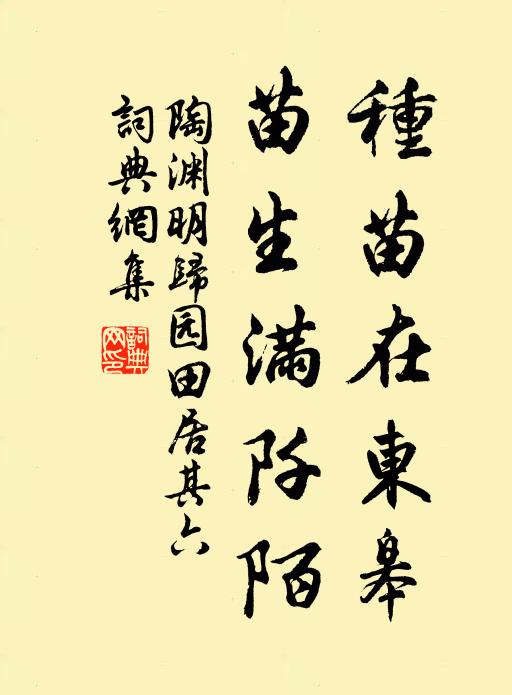 種苗在東皋
苗生滿阡陌
陶渊明歸园田居其六
詞典網集
詞典网印